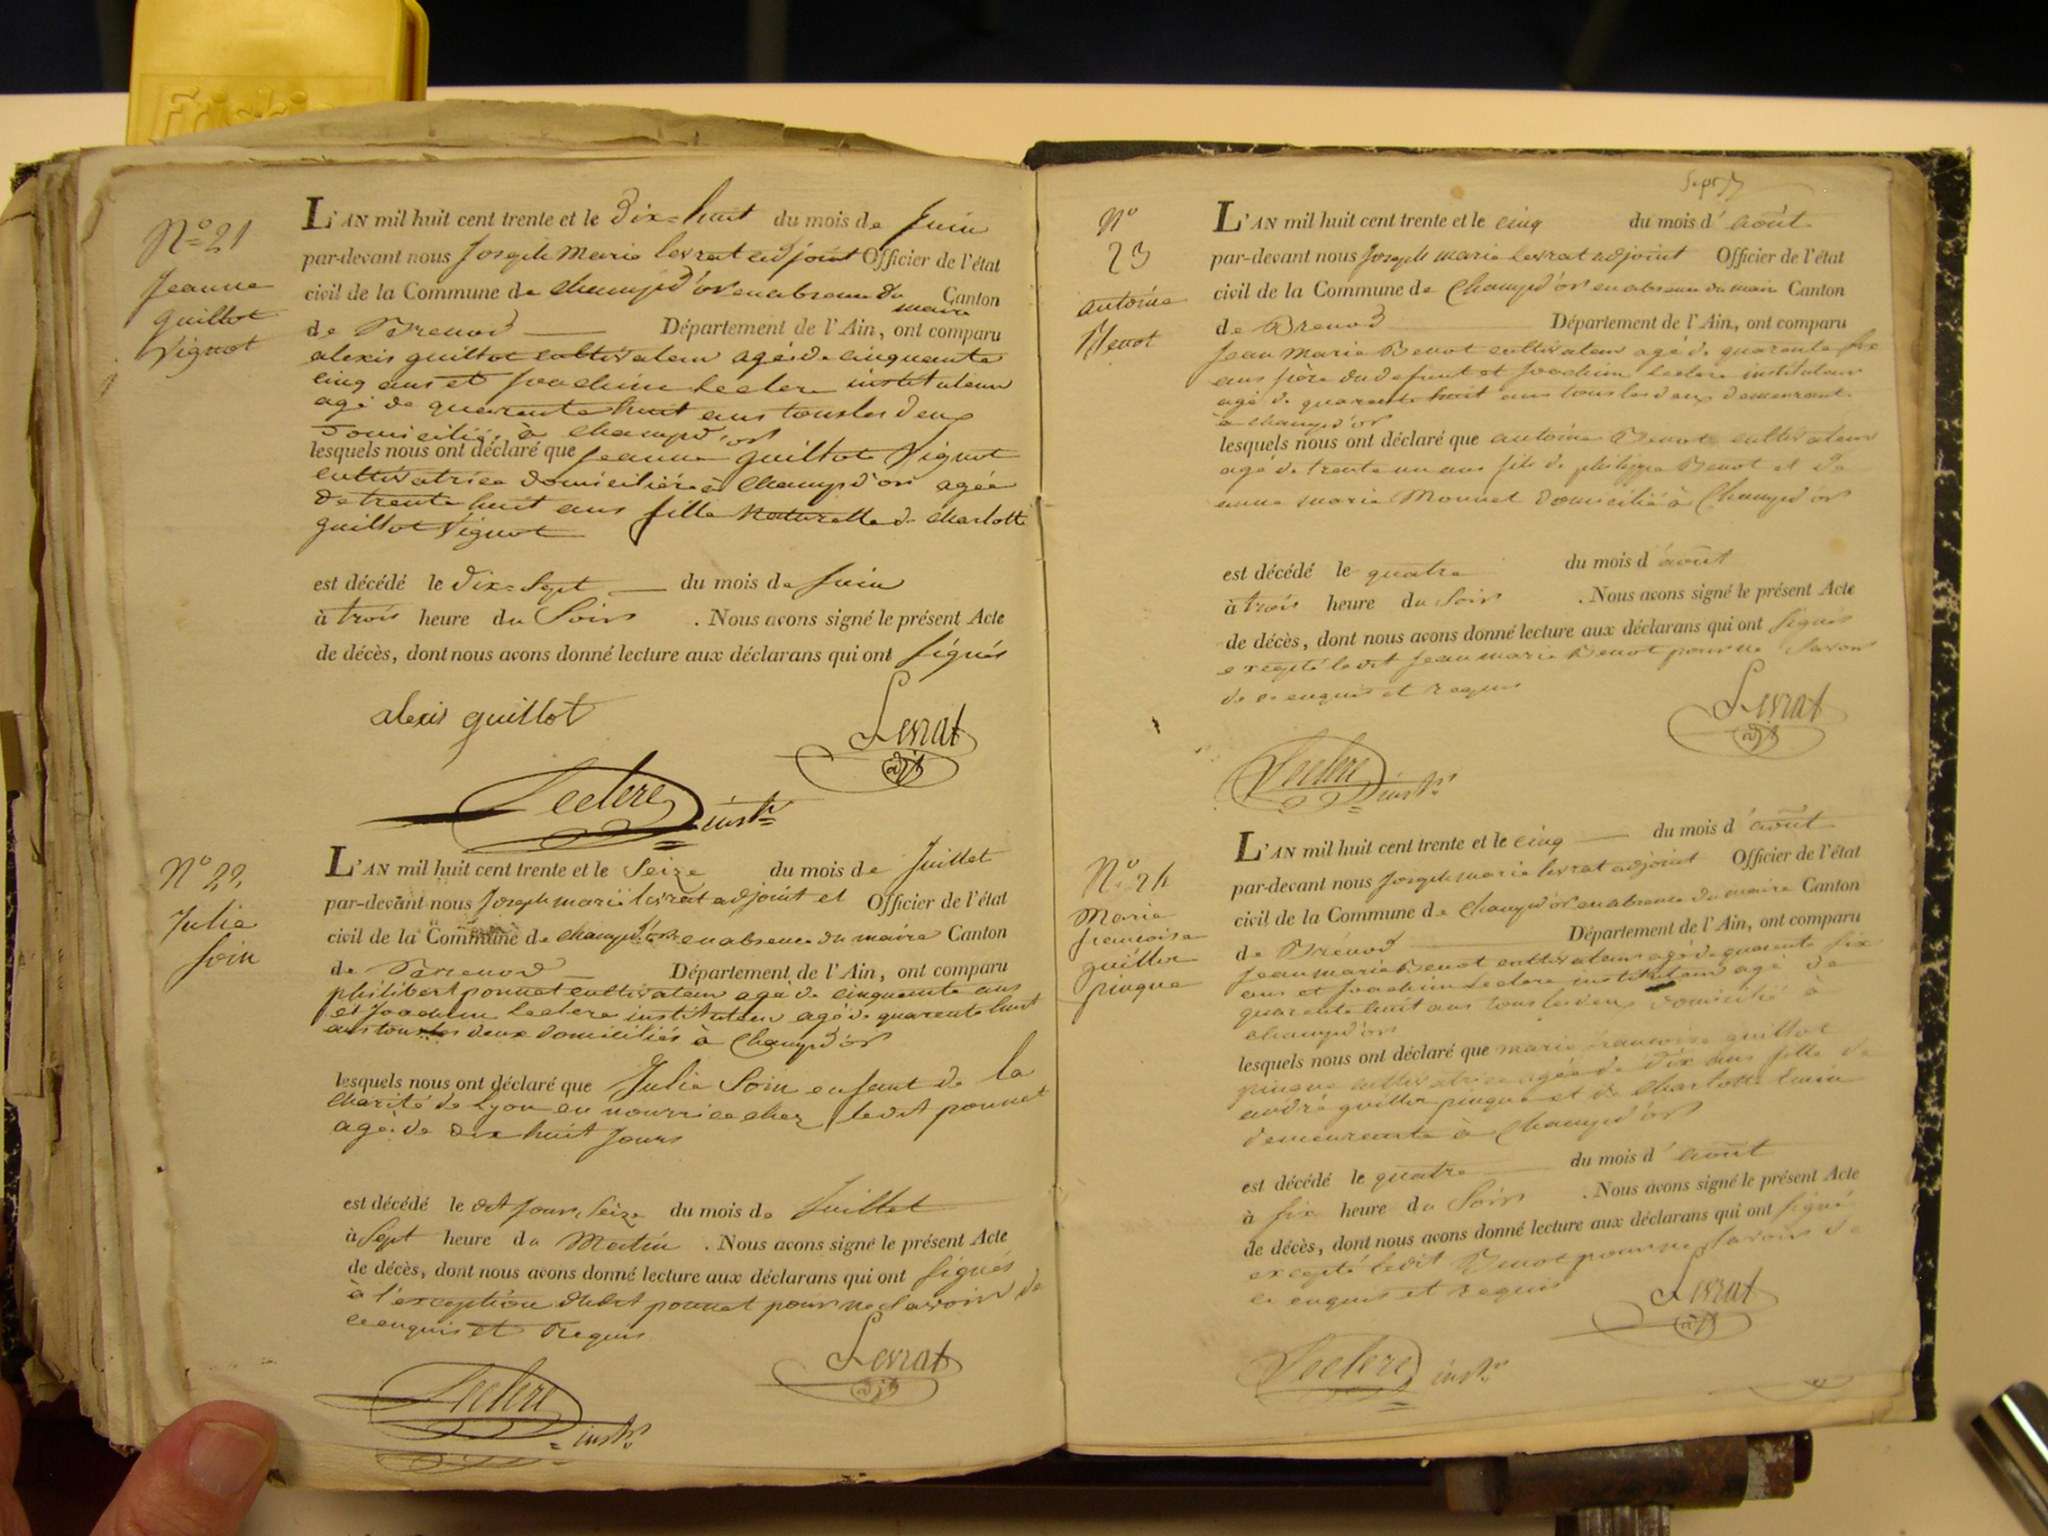 Friskies
N° 21
Jeanne
guillot
Vignot
L'AN mil huit cent trente et le Dix=huit du mois de Juin
par-devant nous Joseph Marie levrat adjoint Officier de l'état
civil de la Commune de Champd'or en absence du maire Canton
de Brenod Département de l'Ain, ont comparu
alexis guillot cultivateur agé de cinquante
cinq ans et Joachim Leclerc instituteur
agé de quarante huit ans tous les deux
domiciliés à Champd'or
lesquels nous ont déclaré que Jeanne guillot Vignot
cultivatrice domiciliée à Champd'or agée
de trente huit ans fille naturelle de Charlotte
guillot Vignot
est décédé le dix=sept du mois de Juin
à trois heure du Soir . Nous avons signé le présent Acte
de décès, dont nous avons donné lecture aux déclarans qui ont signés
alexis guillot
Levrat
adjt
Leclerc instr
N° 22
Julie
Soin
L'AN mil huit cent trente et le Seize du mois de Juillet
par-devant nous Joseph marie levrat adjoint et Officier de l'état
civil de la Commune de Champd'or en absence du maire Canton
de Brenod Département de l'Ain, ont comparu
philibert ponnet cultivateur agé de cinquante ans
et Joachim Leclerc instituteur agé de quarente huit
ans tous les deux domiciliés à Champd'or
lesquels nous ont déclaré que Julie Soin enfant de la
Charité de Lyon en nourrice chez ledit ponnet
agé de dix huit jours
est décédé le dit jour Seize du mois de Juillet
à Sept heure du Matin . Nous avons signé le présent Acte
de décès, dont nous avons donné lecture aux déclarans qui ont signés
à l'exception dudit ponnet pour ne Savoir de
ce enquis et requis
Levrat
adjt
Leclerc instr
N°
23
antoine
Benot
L'AN mil huit cent trente et le cinq du mois d'août
par-devant nous Joseph marie Levrat adjoint Officier de l'état
civil de la Commune de Champd'or en absence du maire Canton
de Brenod Département de l'Ain, ont comparu
Jean Marie Benot cultivateur agé de quarante six
ans frère du defunt et Joachim Leclerc instituteur
agé de quarente huit ans tous les deux demeurant
à Champd'or
lesquels nous ont déclaré que antoine Benot cultivateur
agé de trente un ans fils de philippe Benot et de
anne marie Monnet domicilié à Champd'or
est décédé le quatre du mois d'août
à trois heure du Soir . Nous avons signé le présent Acte
de décès, dont nous avons donné lecture aux déclarans qui ont signés
excepté ledit Jean marie Benot pour ne Savoir
de ce enquis et requis
Levrat
adjt
Leclerc instr
N° 24
Marie
francoise
guillot
pingue
L'AN mil huit cent trente et le cinq du mois d'août
par-devant nous Joseph marie levrat adjoint Officier de l'état
civil de la Commune de Champd'or en absence du maire Canton
de Brénod Département de l'Ain, ont comparu
Jean marie Benot cultivateur agé de quarente six
ans et Joachim Leclerc instituteur agé de
quarente huit ans tous les deux domicilié à
Champd'or
lesquels nous ont déclaré que marie francoise guillot
pingue cultivatrice agée de dix ans fille de
andré guillot pingue et de Charlotte
demeurante à Champd'or
est décédé le quatre du mois d'août
à six heure du Soir . Nous avons signé le présent Acte
de décès, dont nous avons donné lecture aux déclarans qui ont signé
excepté ledit Benot pour ne Savoir de
ce enquis et requis
Levrat
adjt
Leclerc instr